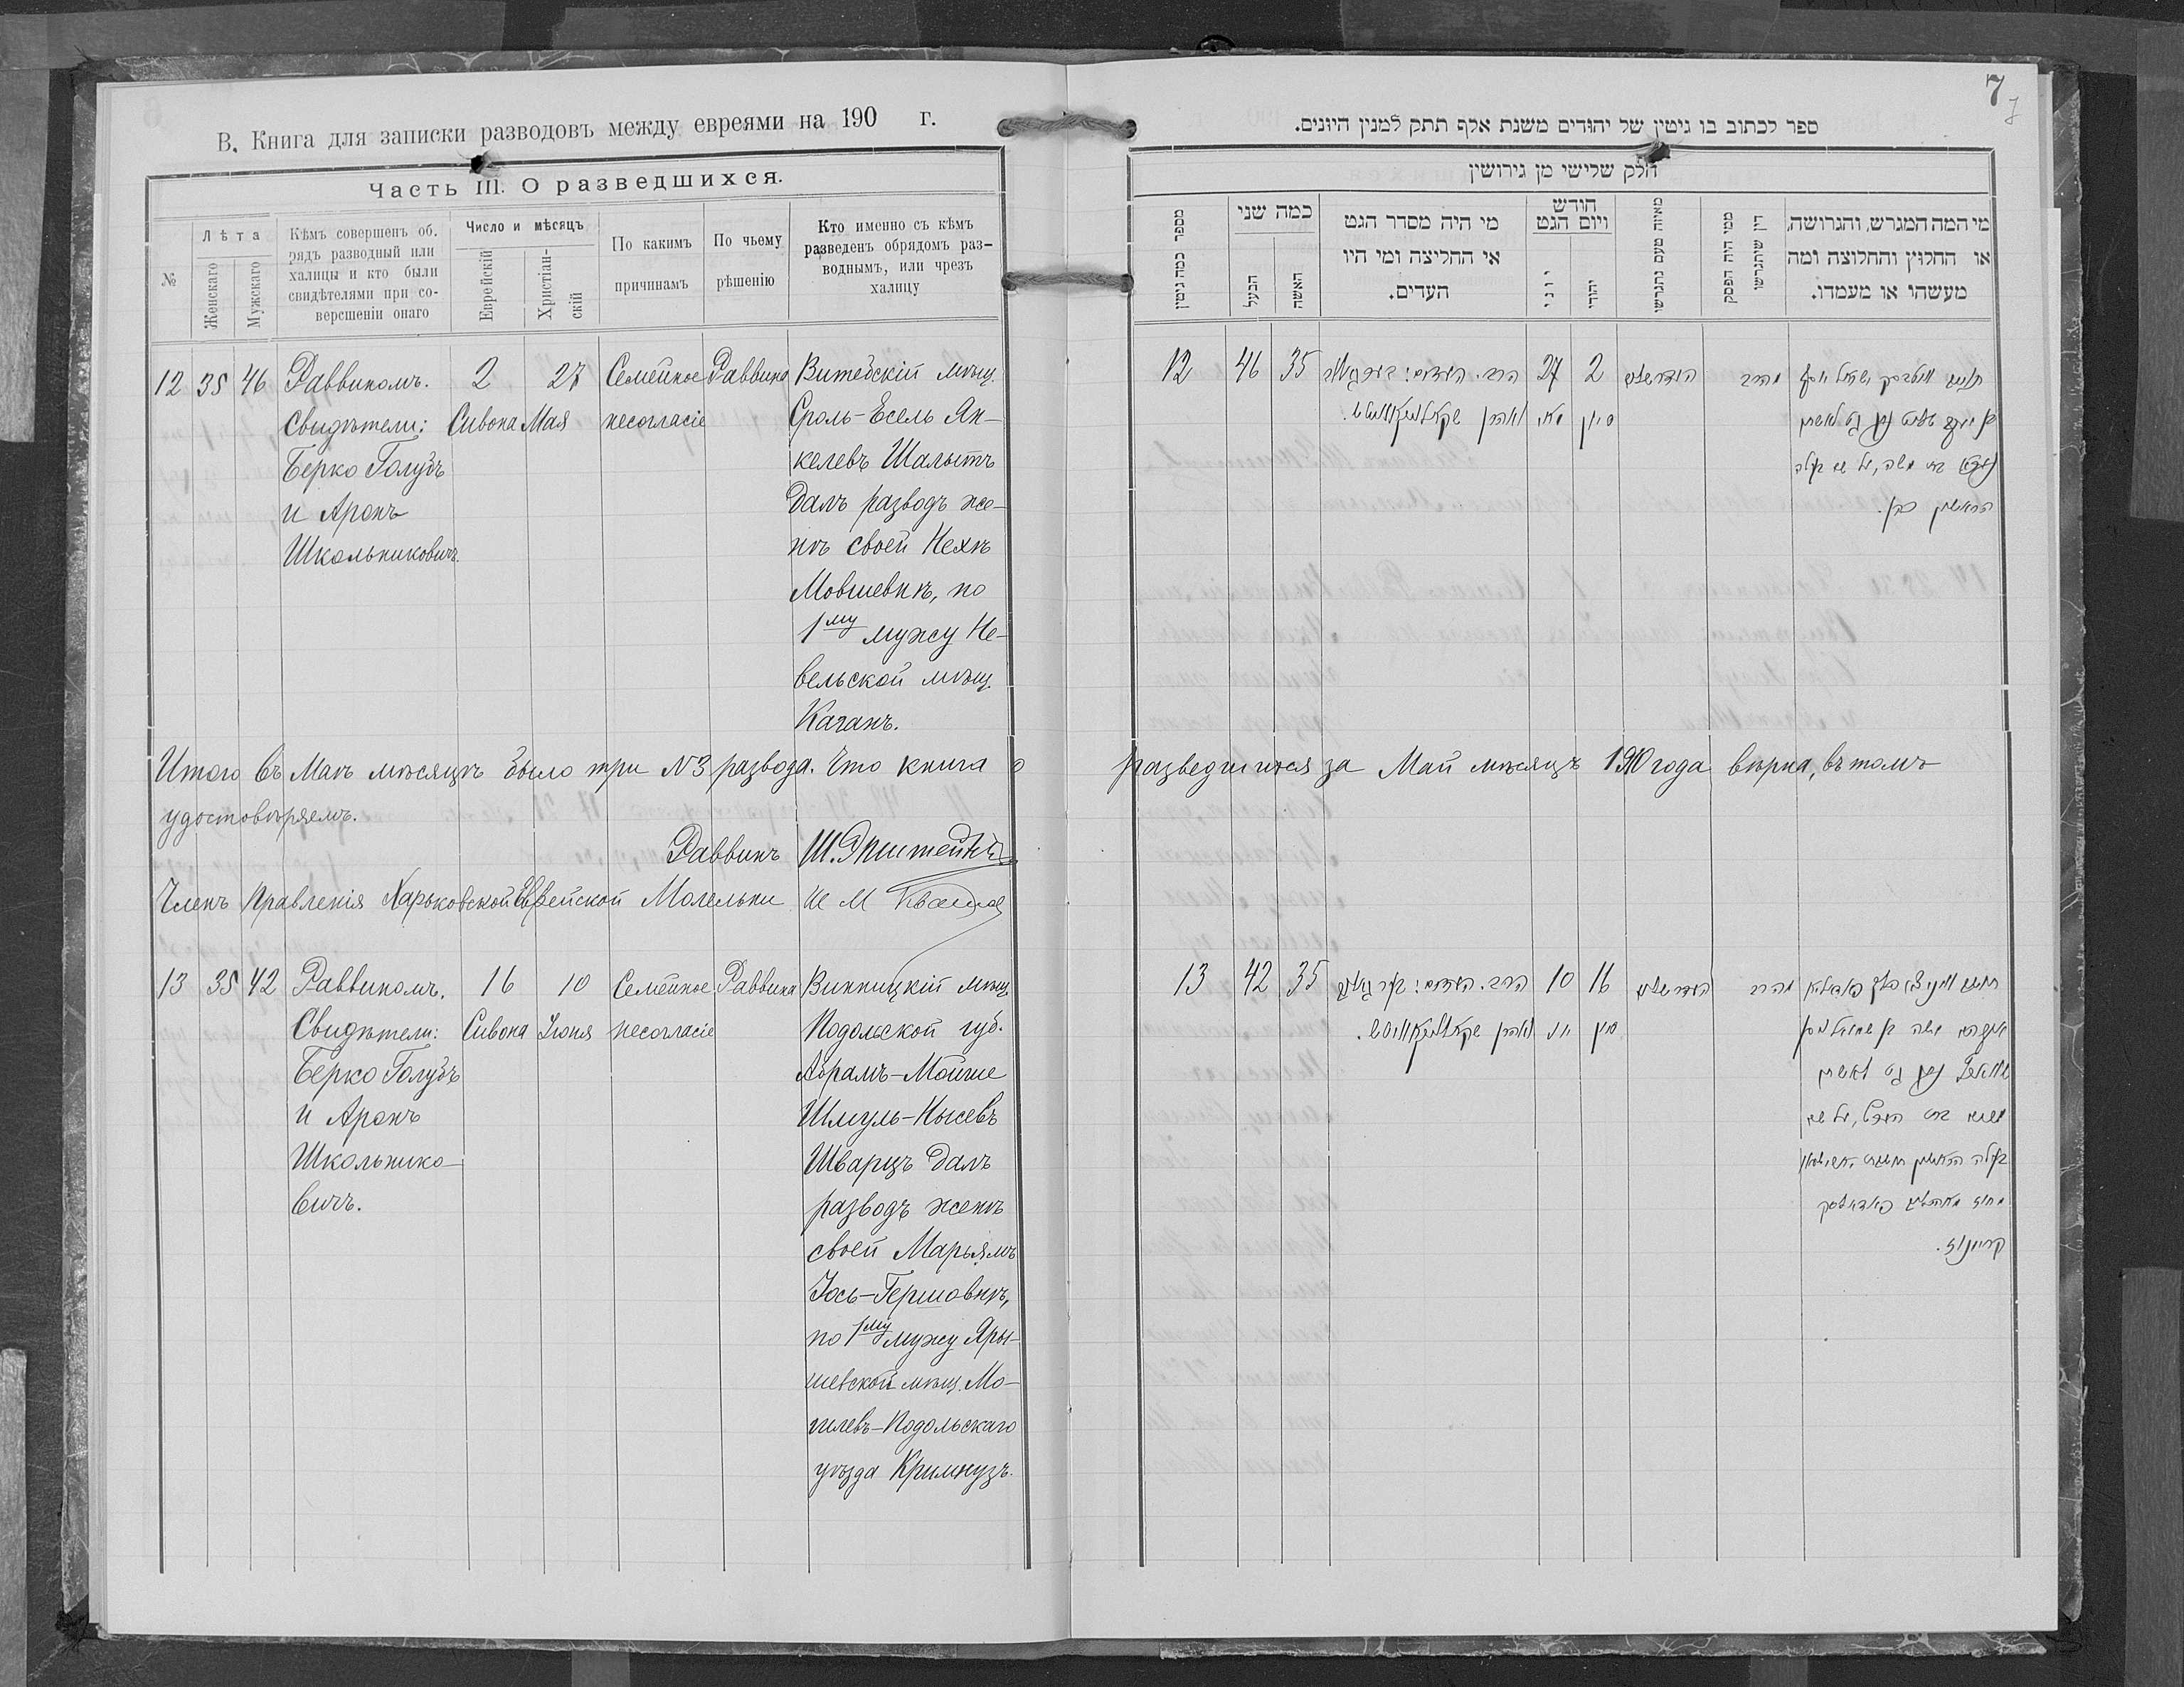 В. Книга для записки разводовъ между евреями на 190 г.
Часть III. О разведшихся.
№
Лѣта
Женскаго
Мужскаго
Кѣмъ совершенъ об.
рядъ разводный или
халицы и кто были
свидѣтелями при со-
вершеніи онаго
Число и мѣсяцъ
Еврейскій
Христіан-
скій
По какимъ
причинамъ
По чьему
рѣшенію
Кто именно съ кѣмъ
разведенъ обрядомъ раз-
воднымъ, или чрезъ
халицу
12 35 46 Раввиномъ. 2 27 Семейное Раввина Витебскій мѣщ.
Свидѣтели: Сивона Мая несогласіе Сроль-Есель Ян-
Берко Голубъ келевъ Шалытъ
и Аронъ далъ разводъ же-
Школьниковичъ. нѣ своей Нехѣ
Мовшевнѣ, по
1му мужу Не-
вельской мѣщ.
Каганъ.
Итого въ Маѣ мѣсяцѣ было три №3 развода. Что книга о
удостовѣряемъ.
Раввинъ Ш. Эпштейнъ
Членъ Правленія Харьковской Еврейской Молельни
13 35 42 Раввиномъ. 16 10 Семейное Раввина Винницкій мѣщ.
Свидѣтели: Сивона Іюня несогласіе Подольской губ.
Берко Голубъ Абрамъ-Мойше
и Аронъ Шмуль-Нысевъ
Школьнико- Шварцъ далъ
вичъ. разводъ женѣ
своей Марьямъ
Іось-Гершовнѣ,
по 1му мужу Яры-
шевской мѣщ. Мо-
гилевъ-Подольскаго
уѣзда Кримнузъ.
7
7
ספר לכתוב בו גיטין של יהודים משנת אלף תתק למנין היונים.
חלק שלישי מן גירושין
מספר כמה גיטין
כמה שני
הבעל
האשה
מי היה מסדר הגט
או החליצה ומי היו
העדים.
חודש
ויום הגט
יוני
יהודי
מאיזה טעם נתגרשו
ממי היה הפסק
דין שהתגרשו
מי המה המגרש, והגרושה,
או החלוץ והחלוצה ומה
מעשהו או מעמדו.
12 46 35 הרב. העדים: 27 2
ואהרן מאי סיון
בת משה, על שם בעלה
הראשון כהן.
разведшихся за Май мѣсяцъ 1910 года вѣрна, въ томъ
13 42 35 הרב. העדים: 10 16
ואהרן יוני סיון
אברהם משה בן שמואל ניסן
שווארץ נתן גט לאשתו
מרים בת
בעלה הראשון